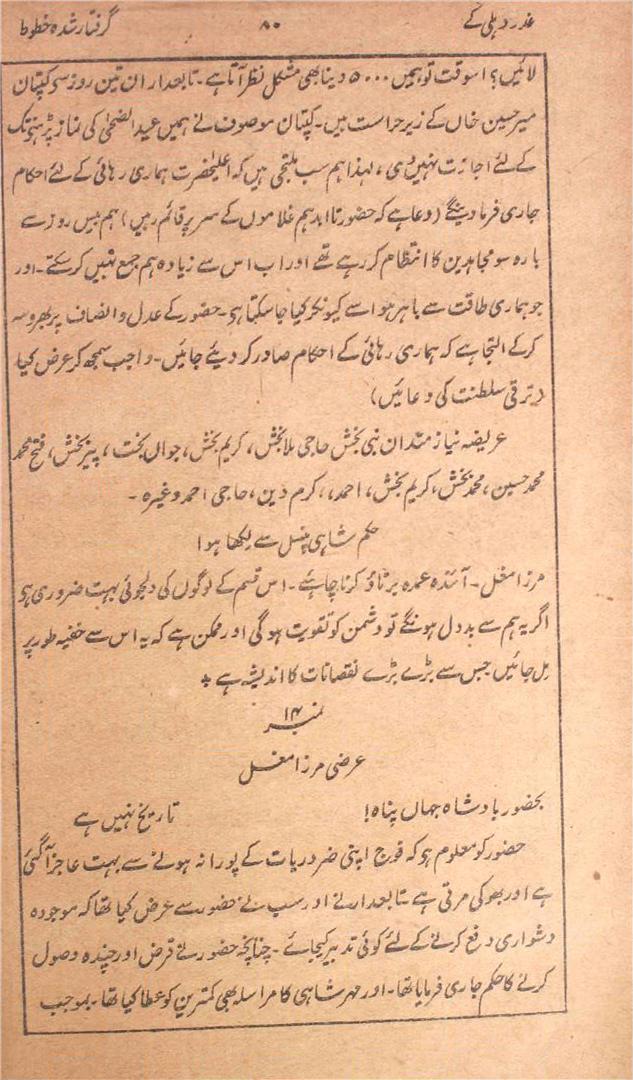 غدر دہلی کے ۸۰ گرفتار شدہ خطوط
لائیں؟ اسوقت تو ہمیں ۵۰۰۰ دینا بھی مشکل نظر آتا ہے۔ تابعدار ان تین روز سے کپتان
میر حسین خاں کے زیر حراست ہیں۔ کپتان موصوف نے ہمیں عید الضحیٰ کی نماز پڑہنے تک
کے لئے اجازت نہیں دی، لہذا ہم سب ملتجی ہیں کہ اعلیٰحضرت ہماری رہائی کے لئے احکام
جاری فرمادینگے (دعا ہے کہ حضور تا ابد ہم غلاموں کے سر پر قائم رہیں) ہم بیس روز سے
بارہ سو مجاہدین کا انتظام کر رہے تھے اور اب اس سے زیادہ ہم جمع نہیں کر سکتے۔ اور
جو ہماری طاقت سے باہر ہو اسے کیونکر کیا جا سکتا ہی۔ حضور کے عدل و انصاف پر بھروسہ
کر کے التجا ہے کہ ہماری رہائی کے احکام صادر کر دیئے جائیں۔ واجب سمجھ کر عرض کیا
(ترقی سلطنت کی دعائیں)
عریضہ نیازمندان نبی بخش حاجی ملا بخش، کریم بخش، جواں بخت، پیر بخش، فتح محمد
محمد حسین، محمد بخش، کریم بخش، احمد،، کرم دین، حاجی احمد وغیرہ۔
حکم شاہی پنسل سے لکھا ہوا
مرزا مغل۔ آئندہ عمدہ برتاؤ کرنا چاہئے۔ اس قسم کے لوگوں کی دلجوئی بہت ضروری ہو
اگر یہ ہم سے بد دل ہونگے تو دشمن کو تقویت ہوگی اور ممکن ہے کہ یہ اس سے خفیہ طور پر
مل جائیں جس سے بڑے بڑے نقصانات کا اندیشہ ہے ٭
نمبر ۱۴
عرضی مرزا مغل
بحضور بادشاہ جہاں پناہ! تاریخ نہیں ہے
حضور کو معلوم ہو کہ فوج اپنی ضروریات کے پورا نہ ہونے سے بہت عاجز آگئی
ہے اور بھوکی مرتی ہے۔ تابعدار نے اور سب نے حضور سے عرض کیا تھا کہ موجودہ
دشواری دفع کرنے کے لئے کوئی تدبیر کیجائے۔ چنانچہ حضور نے قرض اور چندہ وصول
کرنے کا حکم جاری فرمایا تھا۔ اور مہر شاہی کا مراسلہ بھی کمترین کو عطا کیا تھا۔ بموجب